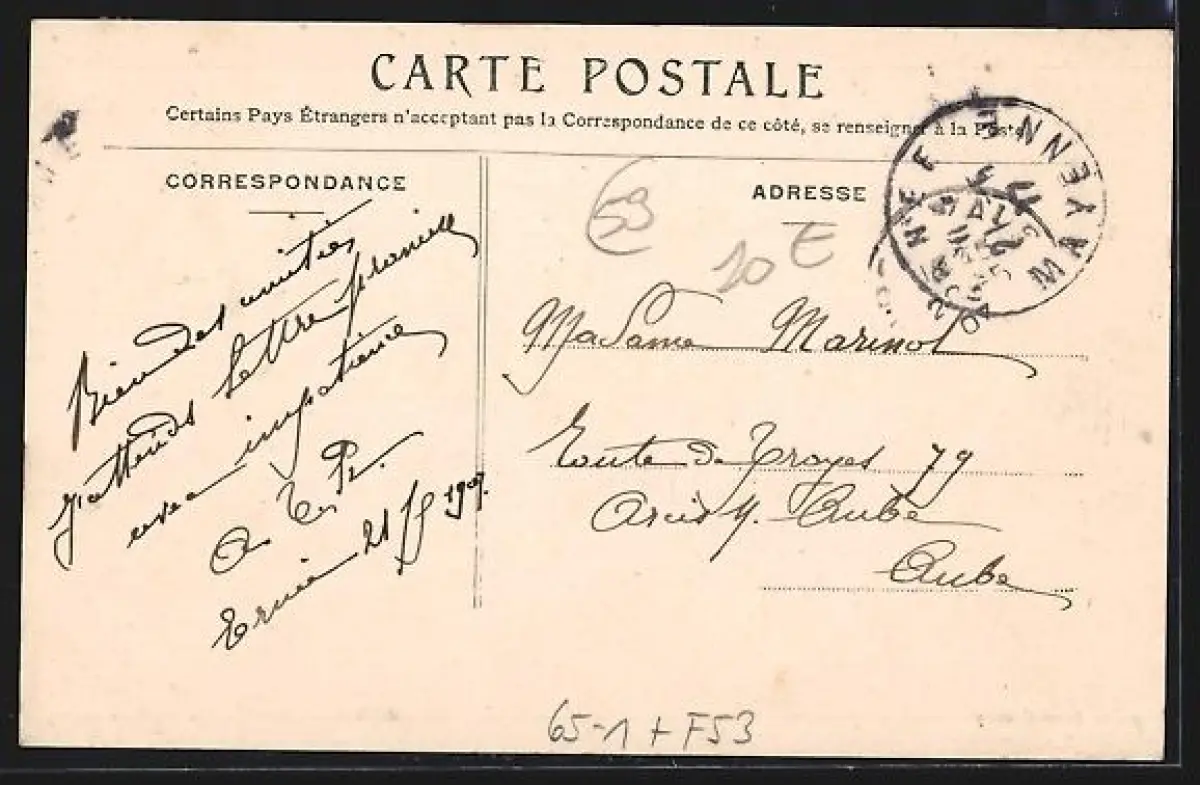 CARTE POSTALE
Certains Pays Étrangers n'acceptant pas la Correspondance de ce côté, se renseigner à la Poste
CORRESPONDANCE
ADRESSE
53
10 €
MAYENNE
Bien des amitiés
J'attends lettre promise
avec impatience
Ernée 21
Madame Marinot
Route de Troyes 79
Arcis s/. Aube
Aube
65-1 + F53